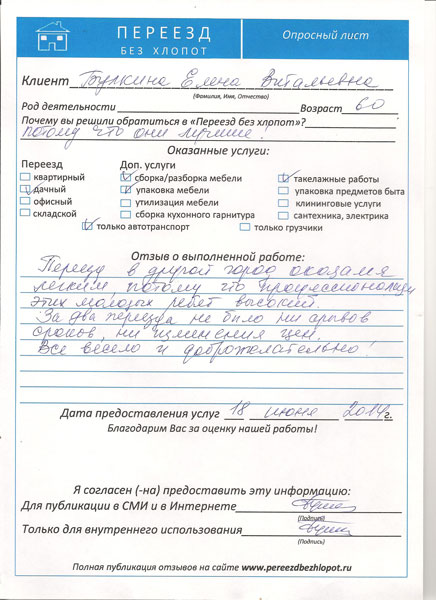 ПЕРЕЕЗД
БЕЗ ХЛОПОТ
Опросный лист
Клиент Булкина Елена Витальевна
(Фамилия, Имя, Отчество)
Род деятельности Возраст 60
Почему вы решили обратиться в «Переезд без хлопот»?
потому что они лучшие!
Оказанные услуги:
Переезд Доп. услуги
квартирный сборка/разборка мебели такелажные работы
дачный упаковка мебели упаковка предметов быта
офисный утилизация мебели клининговые услуги
складской сборка кухонного гарнитура сантехника, электрика
только автотранспорт только грузчики
Отзыв о выполненной работе:
Переезд в другой город оказался
легким потому что профессионализм
этих молодых ребят высокий.
За два переезда не было ни срывов
сроков, ни изменения цен.
Все весело и доброжелательно!
Дата предоставления услуг 18 июня 2014г.
Благодарим Вас за оценку нашей работы!
Я согласен (-на) предоставить эту информацию:
Для публикации в СМИ и в Интернете
(Подпись)
Только для внутреннего использования
(Подпись)
Полная публикация отзывов на сайте www.pereezdbezhlopot.ru